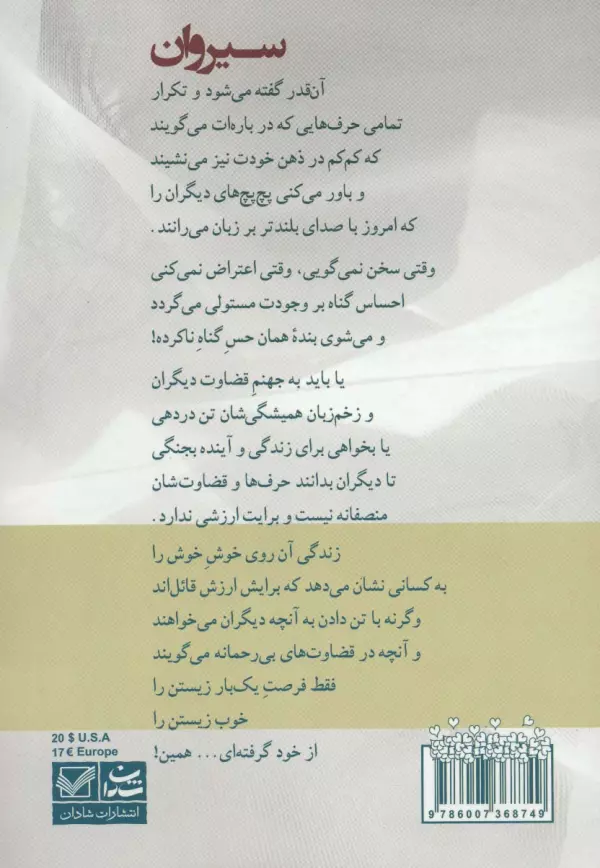 سیروان
آن‌قدر گفته می‌شود و تکرار
تمامی حرف‌هایی که در باره‌ات می‌گویند
که کم‌کم در ذهن خودت نیز می‌نشیند
و باور می‌کنی پچ‌پچ‌های دیگران را
که امروز با صدای بلندتر بر زبان می‌رانند.
وقتی سخن نمی‌گویی، وقتی اعتراض نمی‌کنی
احساس گناه بر وجودت مستولی می‌گردد
و می‌شوی بندهٔ همان حسِ گناهِ ناکرده!
یا باید به جهنمِ قضاوت دیگران
و زخم‌زبان همیشگی‌شان تن دردهی
یا بخواهی برای زندگی و آینده بجنگی
تا دیگران بدانند حرف‌ها و قضاوت‌شان
منصفانه نیست و برایت ارزشی ندارد.
زندگی آن روی خوشِ خوش را
به کسانی نشان می‌دهد که برایش ارزش قائل‌اند
وگرنه با تن دادن به آنچه دیگران می‌خواهند
و آنچه در قضاوت‌های بی‌رحمانه می‌گویند
فقط فرصتِ یک‌بار زیستن را
خوب زیستن را
از خود گرفته‌ای... همین!
20 $ U.S.A
17 € Europe
شادان
انتشارات شادان
9 786007 368749